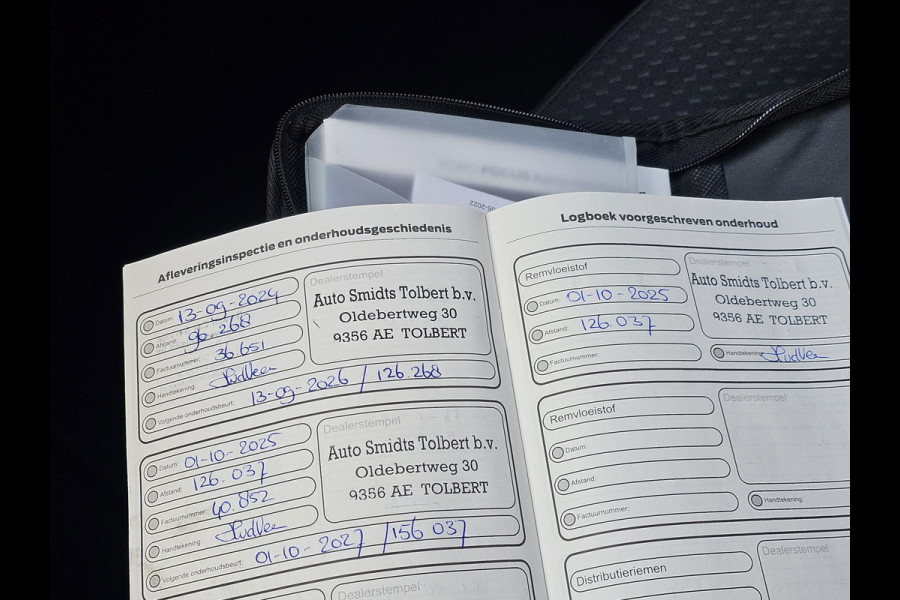 FOCUS
-06-2022
Afleveringsinspectie en onderhoudsgeschiedenis
Datum: 13-09-2024
Afstand: 96.268
Factuurnummer: 36.651
Handtekening:
Volgende onderhoudsbeurt: 13-09-2026 / 126.268
Dealerstempel
Auto Smidts Tolbert b.v.
Oldebertweg 30
9356 AE TOLBERT
Datum: 01-10-2025
Afstand: 126.037
Factuurnummer: 40.852
Handtekening:
Volgende onderhoudsbeurt: 01-10-2027 / 156 037
Dealerstempel
Auto Smidts Tolbert b.v.
Oldebertweg 30
9356 AE TOLBERT
Dealerstempel
Logboek voorgeschreven onderhoud
Remvloeistof
Datum: 01-10-2025
Afstand: 126.037
Factuurnummer:
Dealerstempel
Auto Smidts Tolbert b.v.
Oldebertweg 30
9356 AE TOLBERT
Handtekening:
Remvloeistof
Datum:
Afstand:
Factuurnummer:
Dealerstempel
Handtekening:
Distributieriemen
Dealerstempel